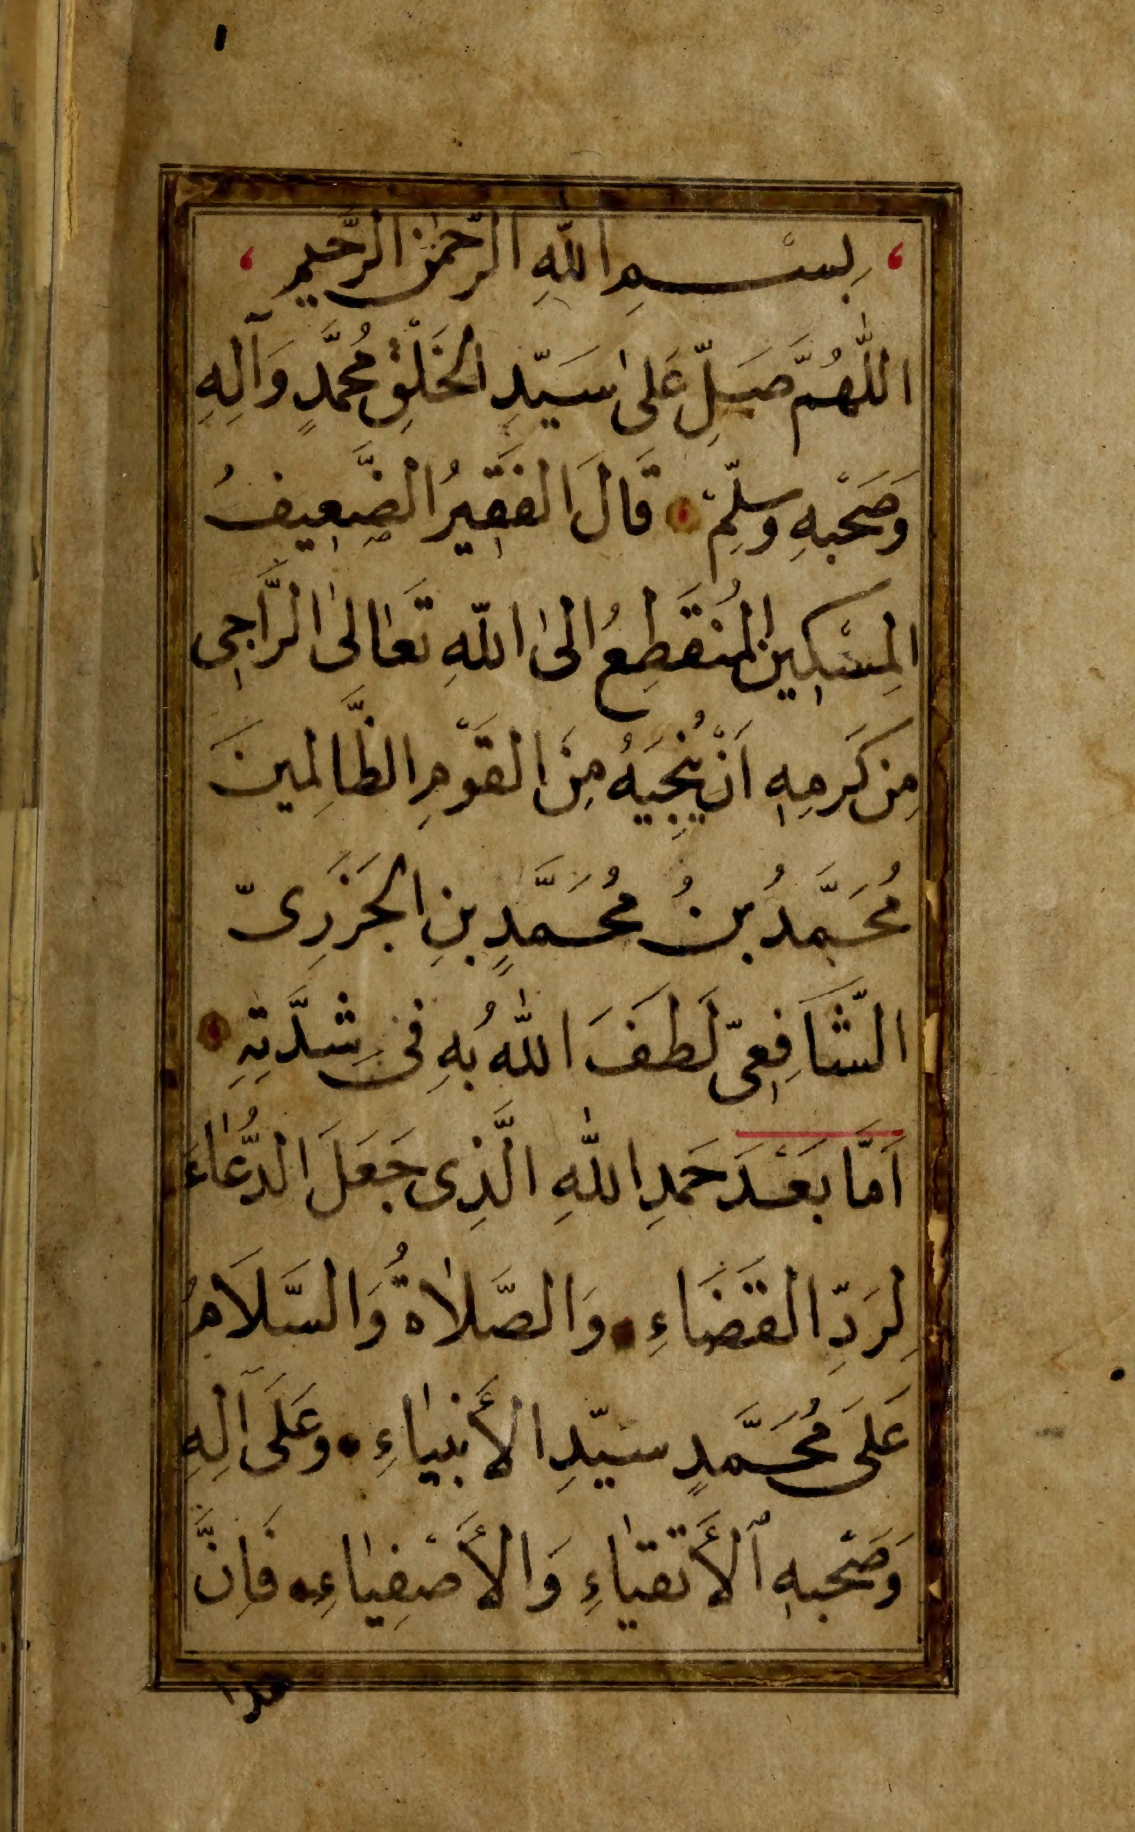 ١
بِسْمِ اللّٰهِ الرَّحْمٰنِ الرَّحِيمِ
اللّٰهُمَّ صَلِّ عَلىٰ سَيِّدِ الْخَلْقِ مُحَمَّدٍ وَآلِهِ
وَصَحْبِهِ وَسَلِّمْ قَالَ الفَقِيرُ الضَّعِيفُ
المِسْكِينُ المُنقَطِعُ الىٰ اللّٰهِ تَعَالىٰ الرَّاجِى
مِن كَرَمِهِ اَنْ يُنْجِيَهُ مِنَ القَوْمِ الظَّالِمينَ
مُحَمَّدُ بنُ مُحَمَّدٍ بنِ الجَزَرِىّ
الشَّافِعِىّ لَطَفَ اللّٰهُ بِهِ فى شِدَّتِهِ
اَمَّا بَعْدَ حَمدِ اللّٰهِ الَّذِى جَعَلَ الدُّعَاءَ
لِرَدِّ القَضَاءِ وَالصَّلاٰةُ وَالسَّلَامُ
عَلَى مُحَمَّدٍ سَيِّدِ الأَنبيٰاءِ وَعَلَى آلِهِ
وَصَحْبِهِ الأَتقيٰاءِ وَالأَصْفِيٰاءِ فَاِنَّ
هذا